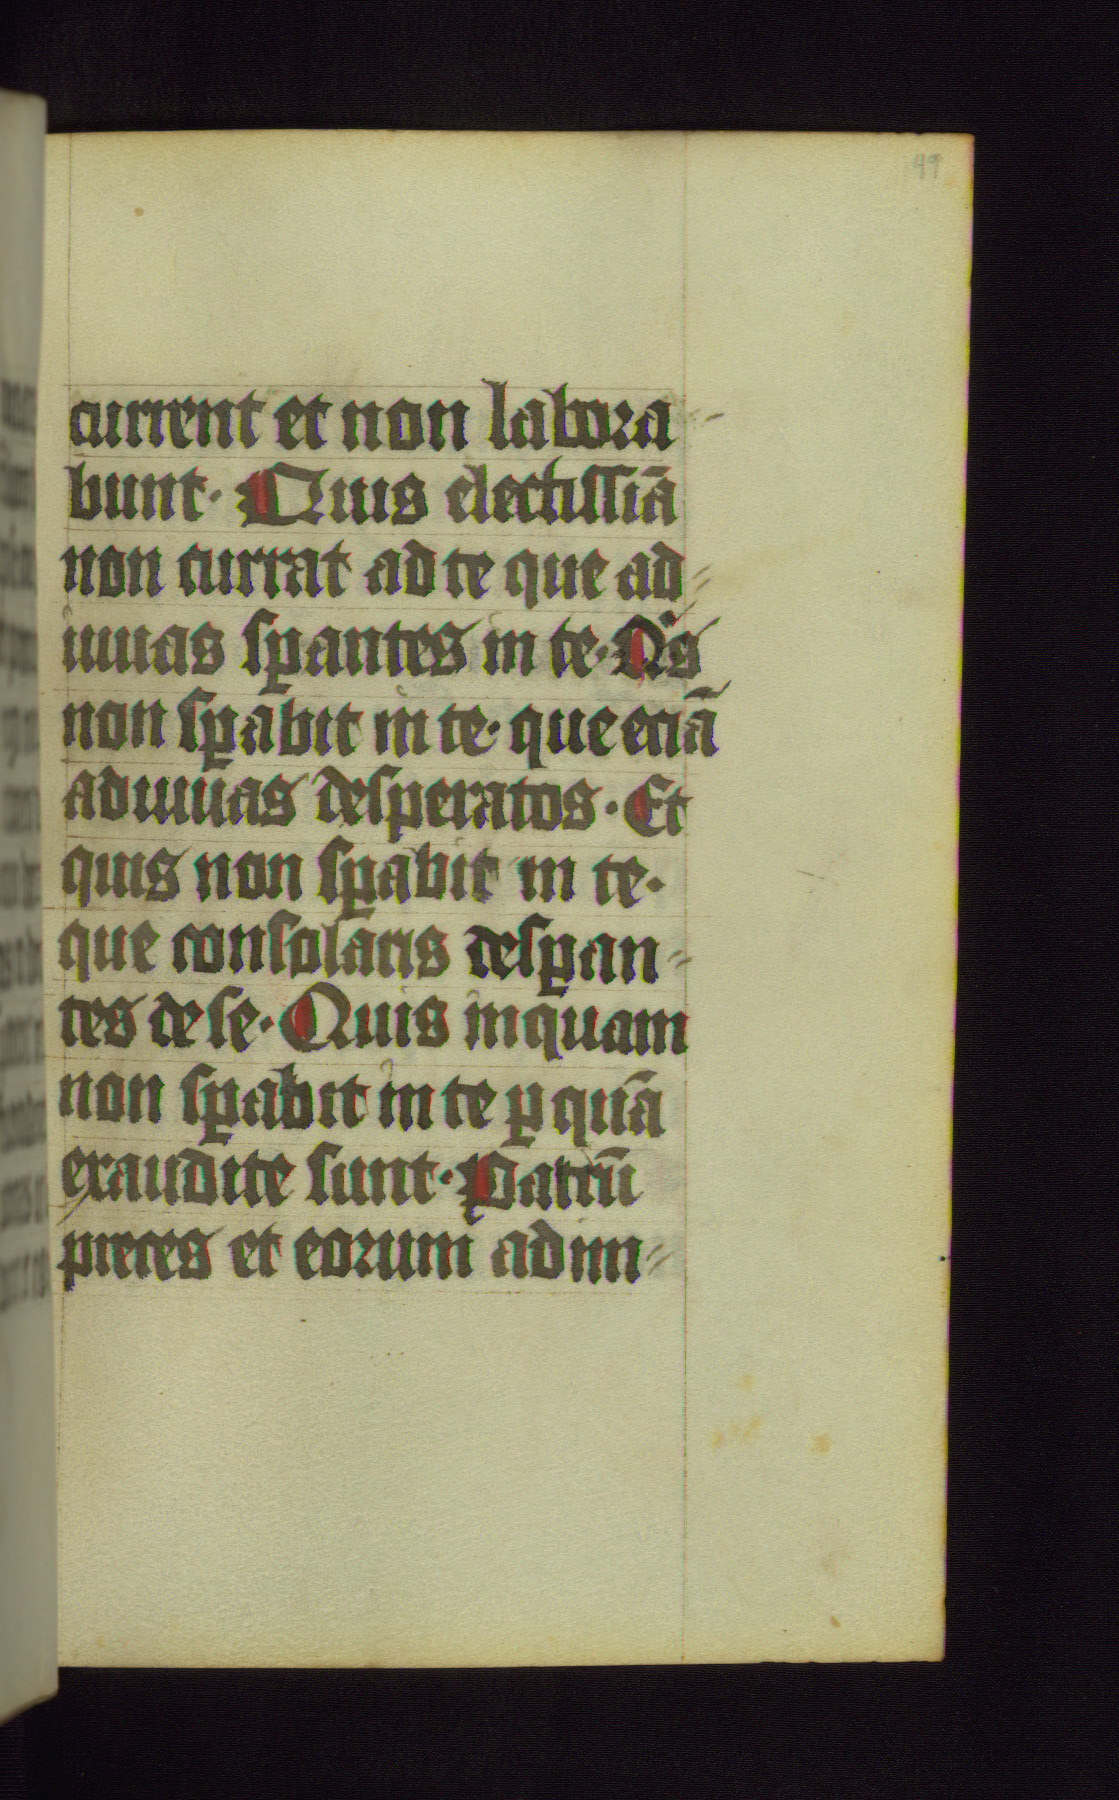 49
current et non labora
bunt. Quis electissiā
non currat ad te que ad
iuuas sꝑantes in te. Qͥs
non sꝑabit in te. que eciā
adiuuas desperatos. Et
quis non sꝑabit in te.
que consolaris desꝑan
tes de se. Quis inquam
non sꝑabit in te ꝑ quā
exaudite sunt. Patrū
preces et eorum adim